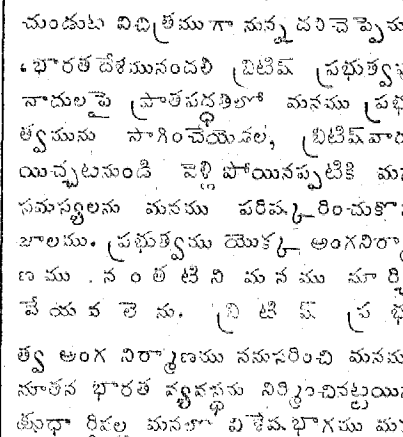 చుండుట విచిత్రముగా నున్నదని చెప్పెను
. భారత దేశమునందలి బ్రిటిష్ ప్రభుత్వ
నాదులపై ప్రాతపద్ధతిలో మనము ప్రభ
త్వమును సాగించేయెడల, బ్రిటిష్‌వార
యిచ్చటనుండి వెళ్లి పోయినప్పటికి మన
సమస్యలను మనము పరిష్కరించుకొ
జాలము. ప్రభుత్వము యొక్క అంగనిర్మా
ణము నంతటిని మనము మార్చి
వేయవలెను. బ్రిటిష్ ప్రభ
త్వ అంగ నిర్మాణము ననుసరించి మనము
నూతన భారత వ్యవస్థను నిర్మించినట్టయి
మనలో విశేషభాగము